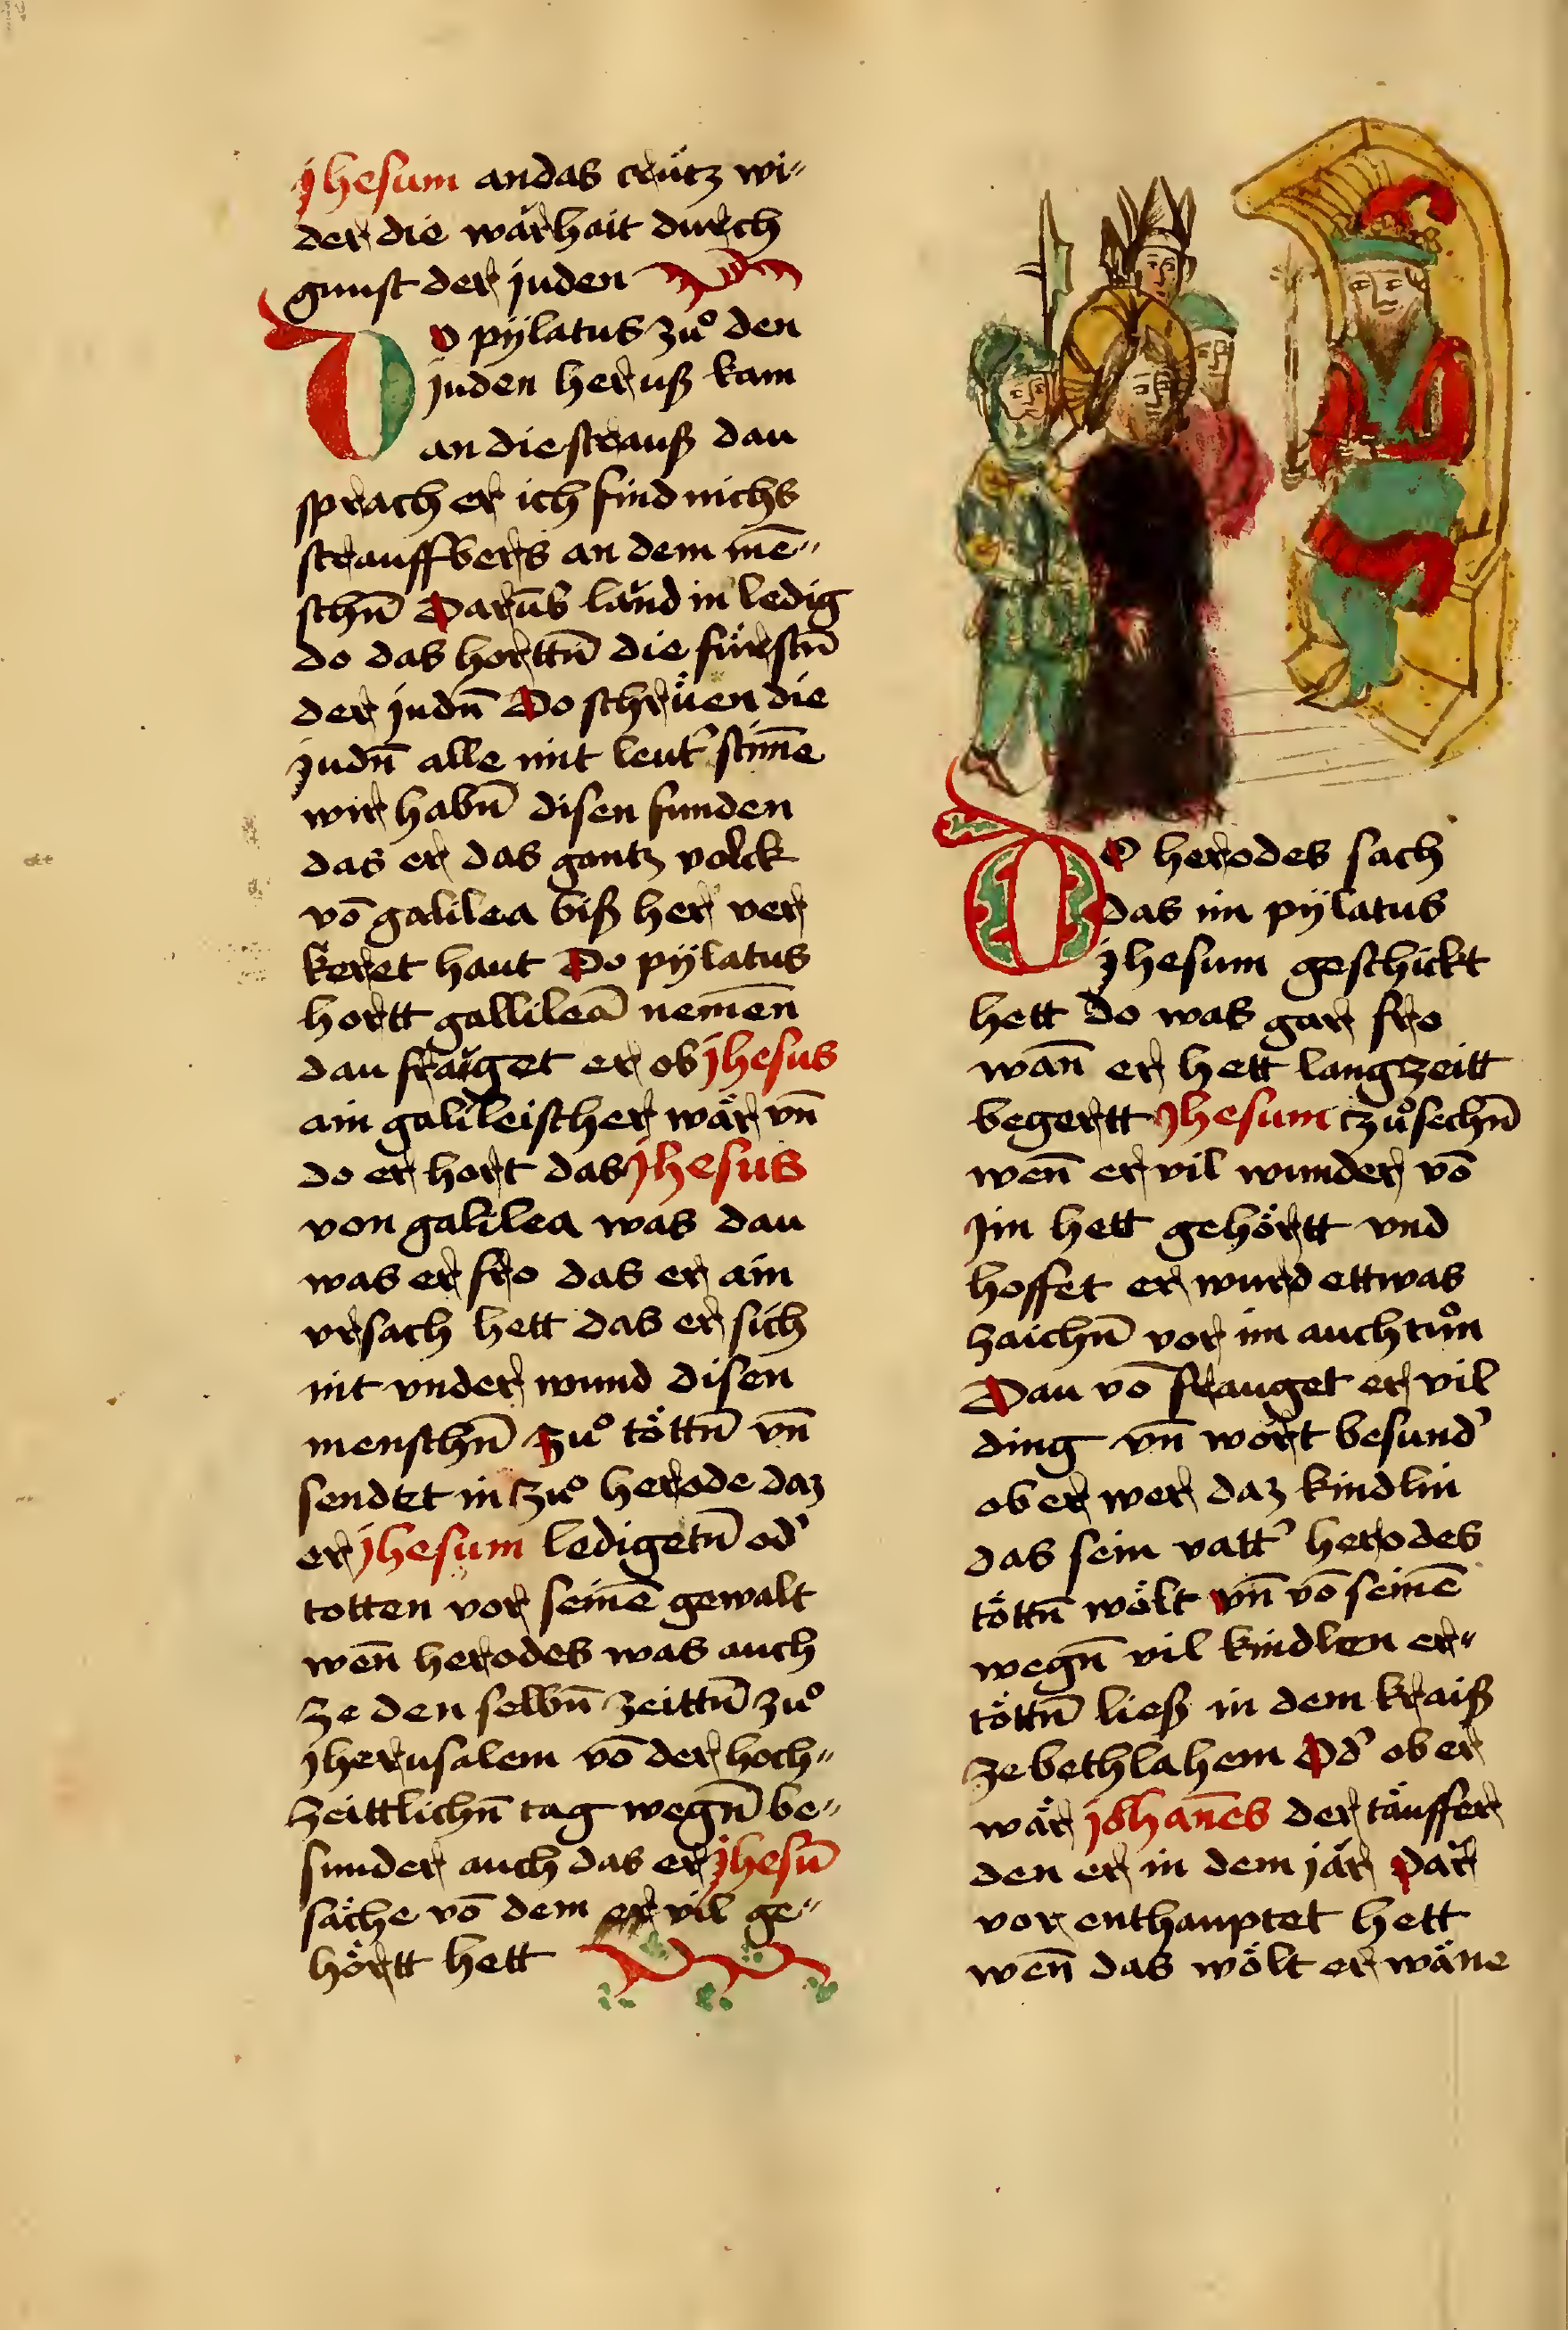 jhesum an das crütz wi〃
der die warhait durch
gunst der juden
Do pÿlatus zuͦ den
juden her uß kam
an die strauß dau
sprach er ich find nichs
strauffbers an dem mē〃
schn̄ Darūb land in ledig
do das horttn̄ die fürstn̄
der judn̄ Do schrüen die
judn̄ alle mit leut' stim̄e
wir habn̄ disen funden
das er das gantz volck
vō galilea biß her ver
keret haut Do pÿlatus
hortt gallileā nem̄en
dau frauget er ob jhesus
ain galileischer wär vn̄
do er hort das jhesus
von galilea was dau
was er fro das er ain
vrsach hett das er sich
nit vnder wund disen
menschn̄ zuͦ töttn̄ vn̄
sendet in zuͦ herode daz
er jhesum ledigetn̄ od'
totten vor seinē gewalt
wen̄ herodes was auch
ze den selbn̄ zeittn̄ zuͦ
jherusalem vō der hoch〃
zeittlichn̄ tag wegn̄ be〃
sunder auch das er jhesū
säche vō dem er vil ge〃
hörtt hett
Do herodes sach
das im pÿlatus
jhesum geschickt
hett do was gar fro
wan̄ er hett lang zeitt
begertt jhesum tzuͦ sechn̄
wen̄ er vil wunder vō
jm hett gehörtt vnd
hoffet er wurd ettwas
zaichn̄ vor im auch tuͦn
Dau vō frauget er vil
ding vn̄ wort besund'
ob er wer daz kindlin
das sein vatt' herodes
töttn̄ wölt vn̄ vō seinē
wegn̄ vil kindlen er〃
töttn̄ ließ in dem kraiß
ze bethlahem Od' ob er
wär johan̄es der täuffer
den er in dem jär Dar
vor enthauptet hett
wen̄ das wölt er wäne